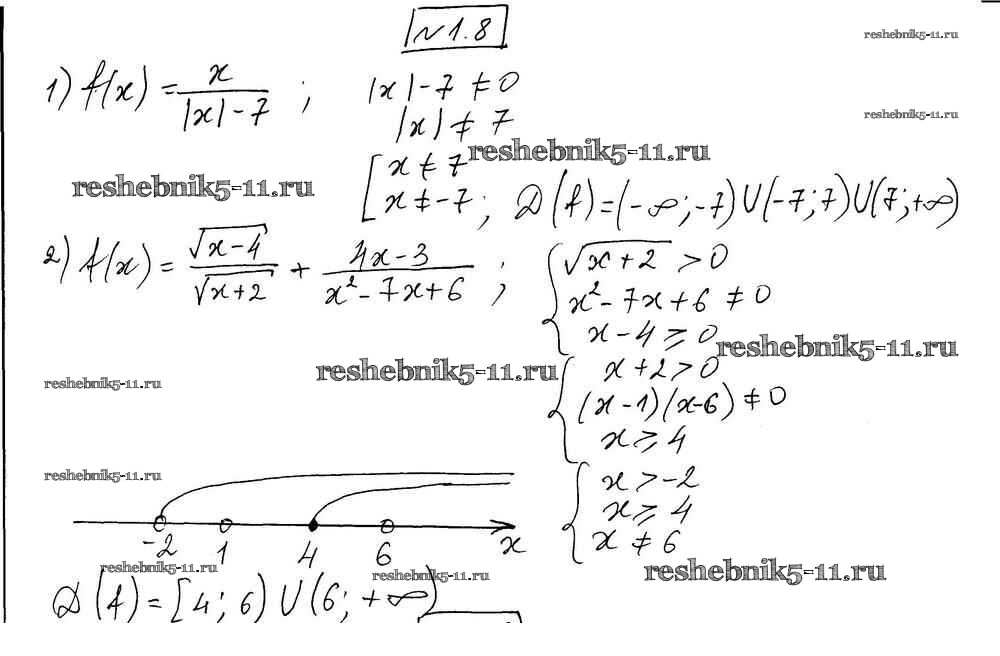 №1.8
reshebnik5-11.ru
1) f(x) = x/(|x|-7) ; |x|-7 ≠ 0
|x| ≠ 7
reshebnik5-11.ru
reshebnik5-11.ru
[ x ≠ 7
reshebnik5-11.ru
x ≠ -7 ; D(f) = (-∞;-7)U(-7;7)U(7;+∞)
2) f(x) = √(x-4)/√(x+2) + (4x-3)/(x²-7x+6) ; { √(x+2) > 0
x²-7x+6 ≠ 0
x-4 ≥ 0
reshebnik5-11.ru
reshebnik5-11.ru
reshebnik5-11.ru
{ x+2 > 0
(x-1)(x-6) ≠ 0
x ≥ 4
reshebnik5-11.ru
{ x > -2
x ≥ 4
x ≠ 6
-2 1 4 6 x
reshebnik5-11.ru
reshebnik5-11.ru
reshebnik5-11.ru
D(f) = [4; 6) U (6; +∞)